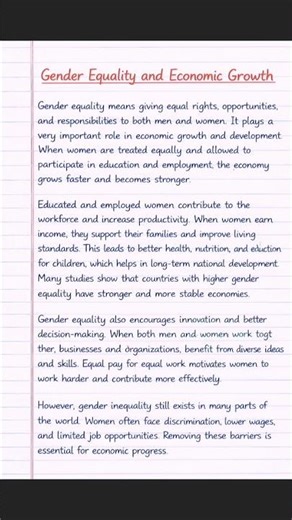 Gender Equality and Economic Growth
Gender equality means giving equal rights, opportunities,
and responsibilities to both men and women. It plays a
very important role in economic growth and development.
When women are treated equally and allowed to
participate in education and employment, the economy
grows faster and becomes stronger.
Educated and employed women contribute to the
workforce and increase productivity. When women earn
income, they support their families and improve living
standards. This leads to better health, nutrition, and eduction
for children, which helps in long-term national development.
Many studies show that countries with higher gender
equality have stronger and more stable economies.
Gender equality also encourages innovation and better
decision-making. When both men and women work togt
ther, businesses and organizations, benefit from diverse ideas
and skills. Equal pay for equal work motivates women to
work harder and contribute more effectively.
However, gender inequality still exists in many parts of
the world. Women often face discrimination, lower wages,
and limited job opportunities. Removing these barriers is
essential for economic progress.